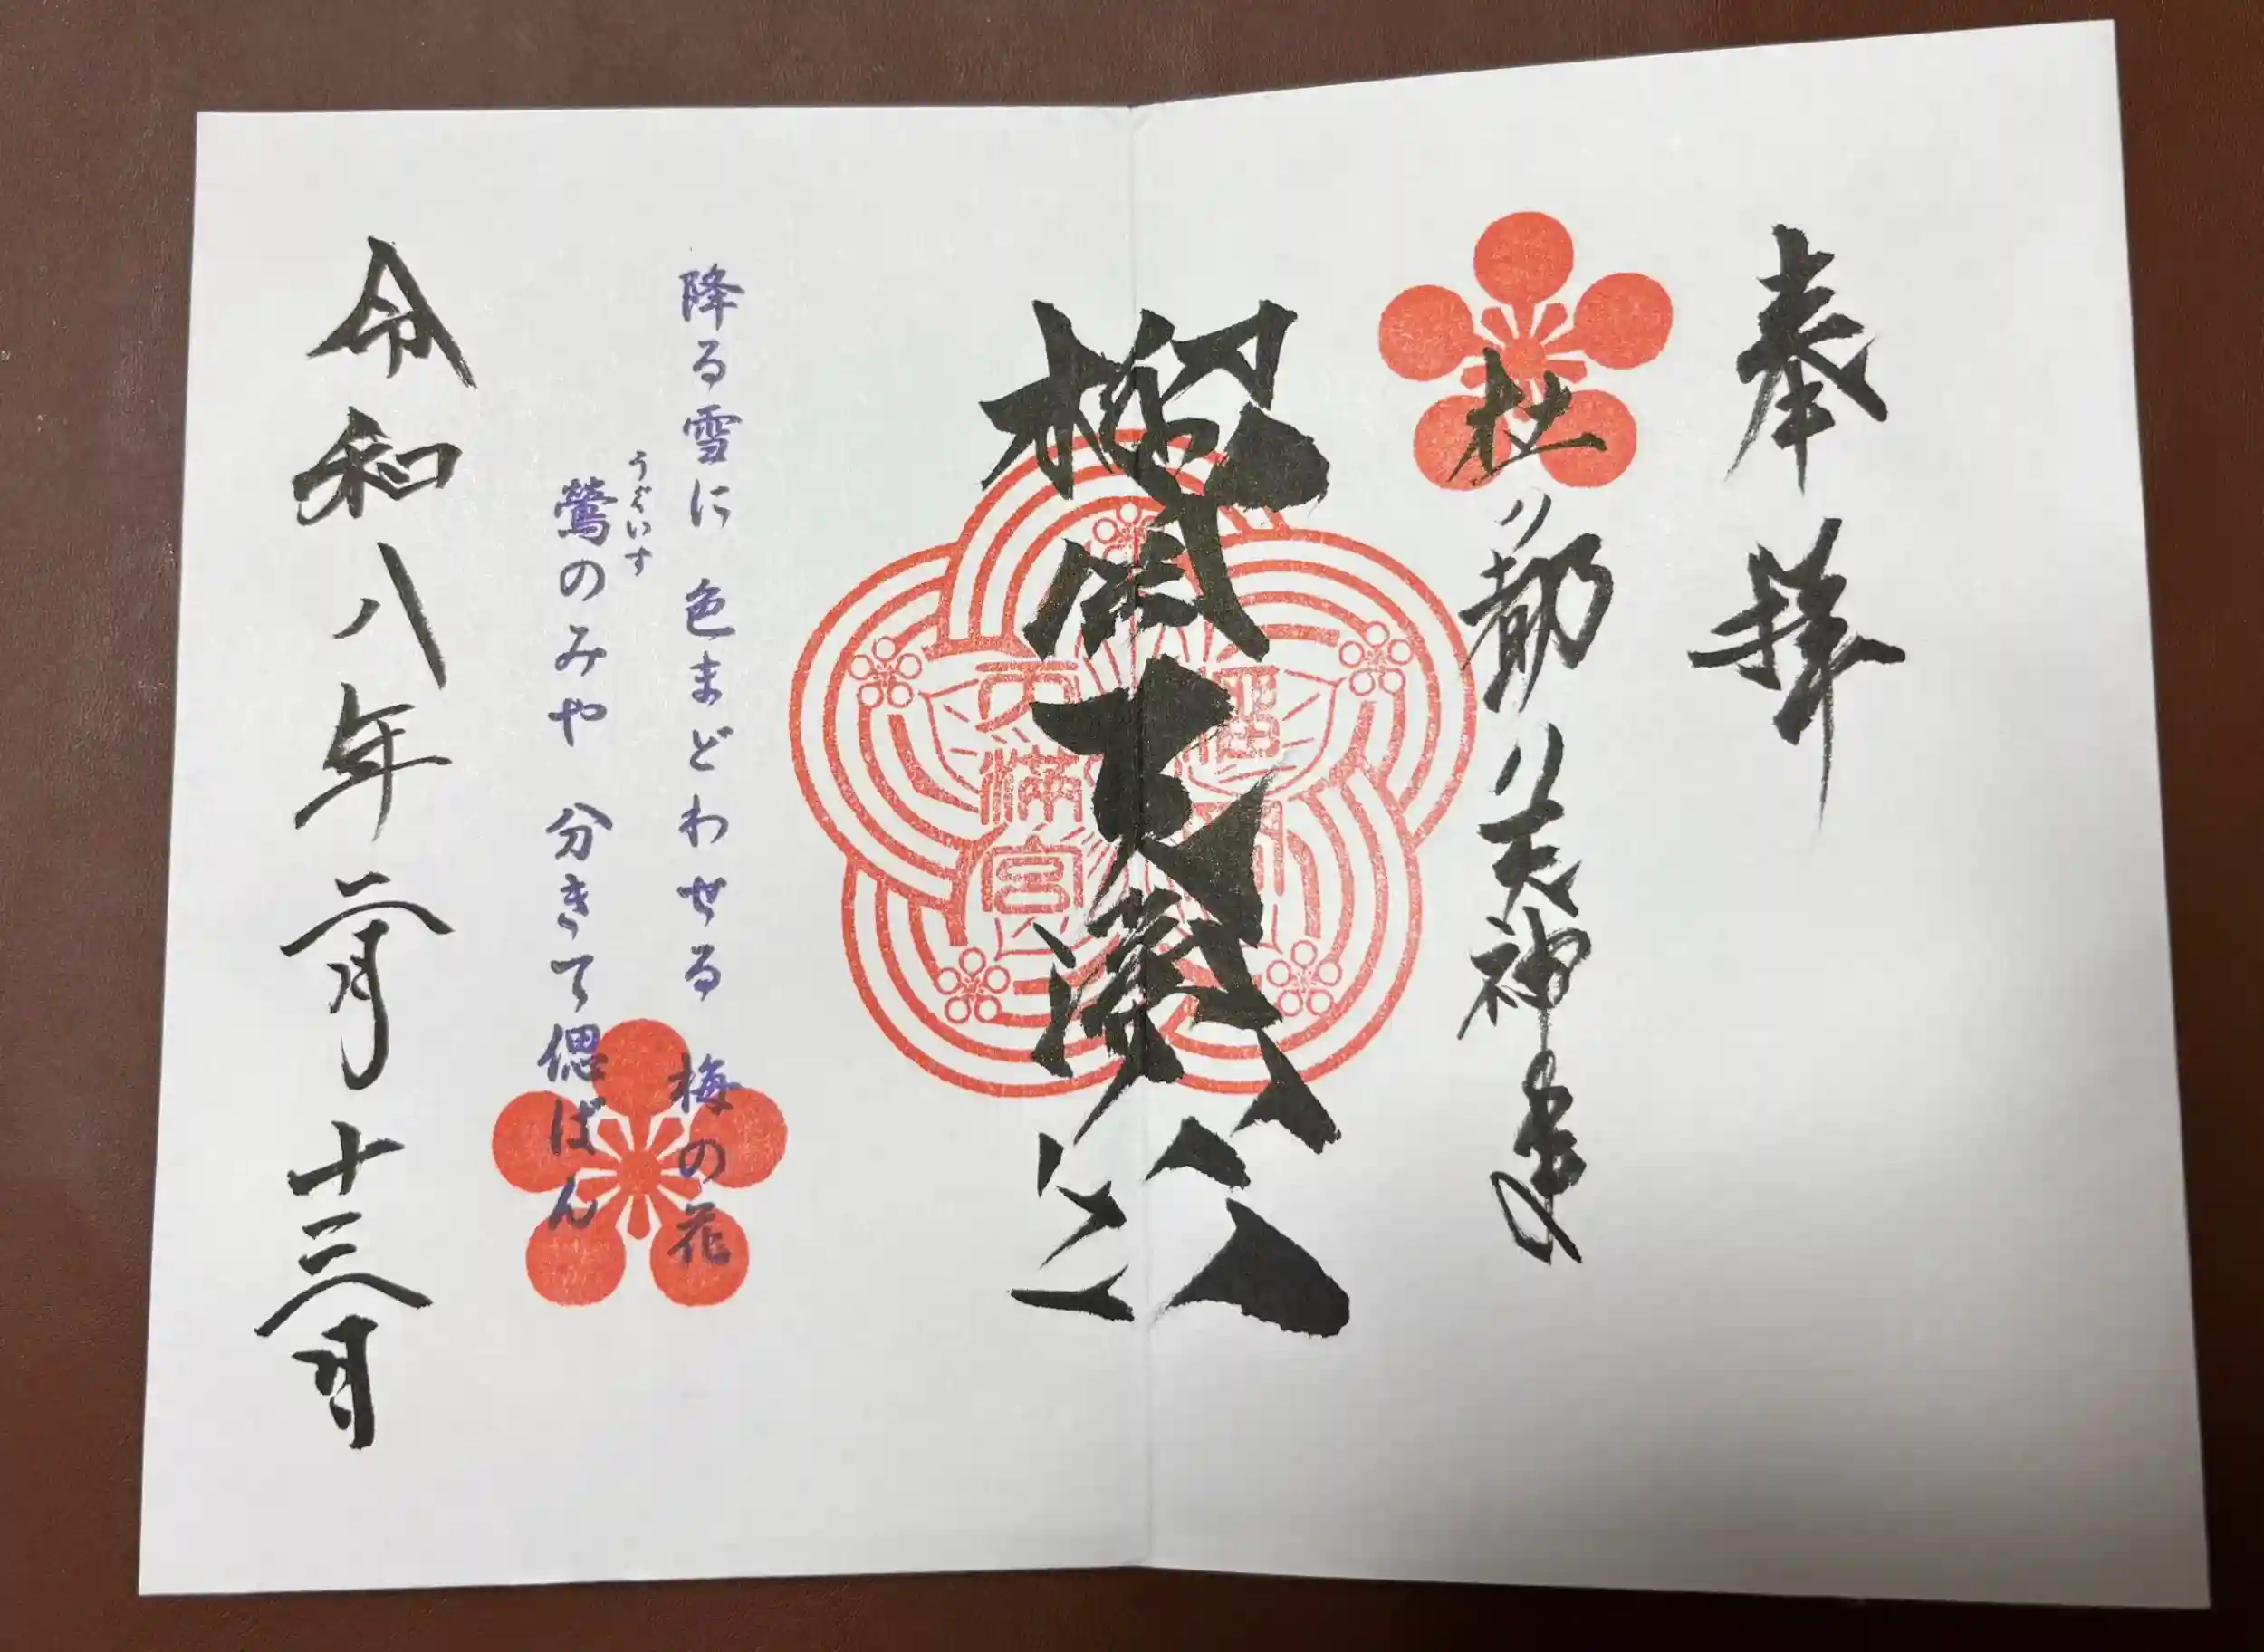 奉拝
杜ノ都ノ天神
榴岡天満宮
榴岡
天満宮
降る雪に 色まどわせる 梅の花
うぐいす
鶯のみや 分きて偲ばん
令和八年二月十三日